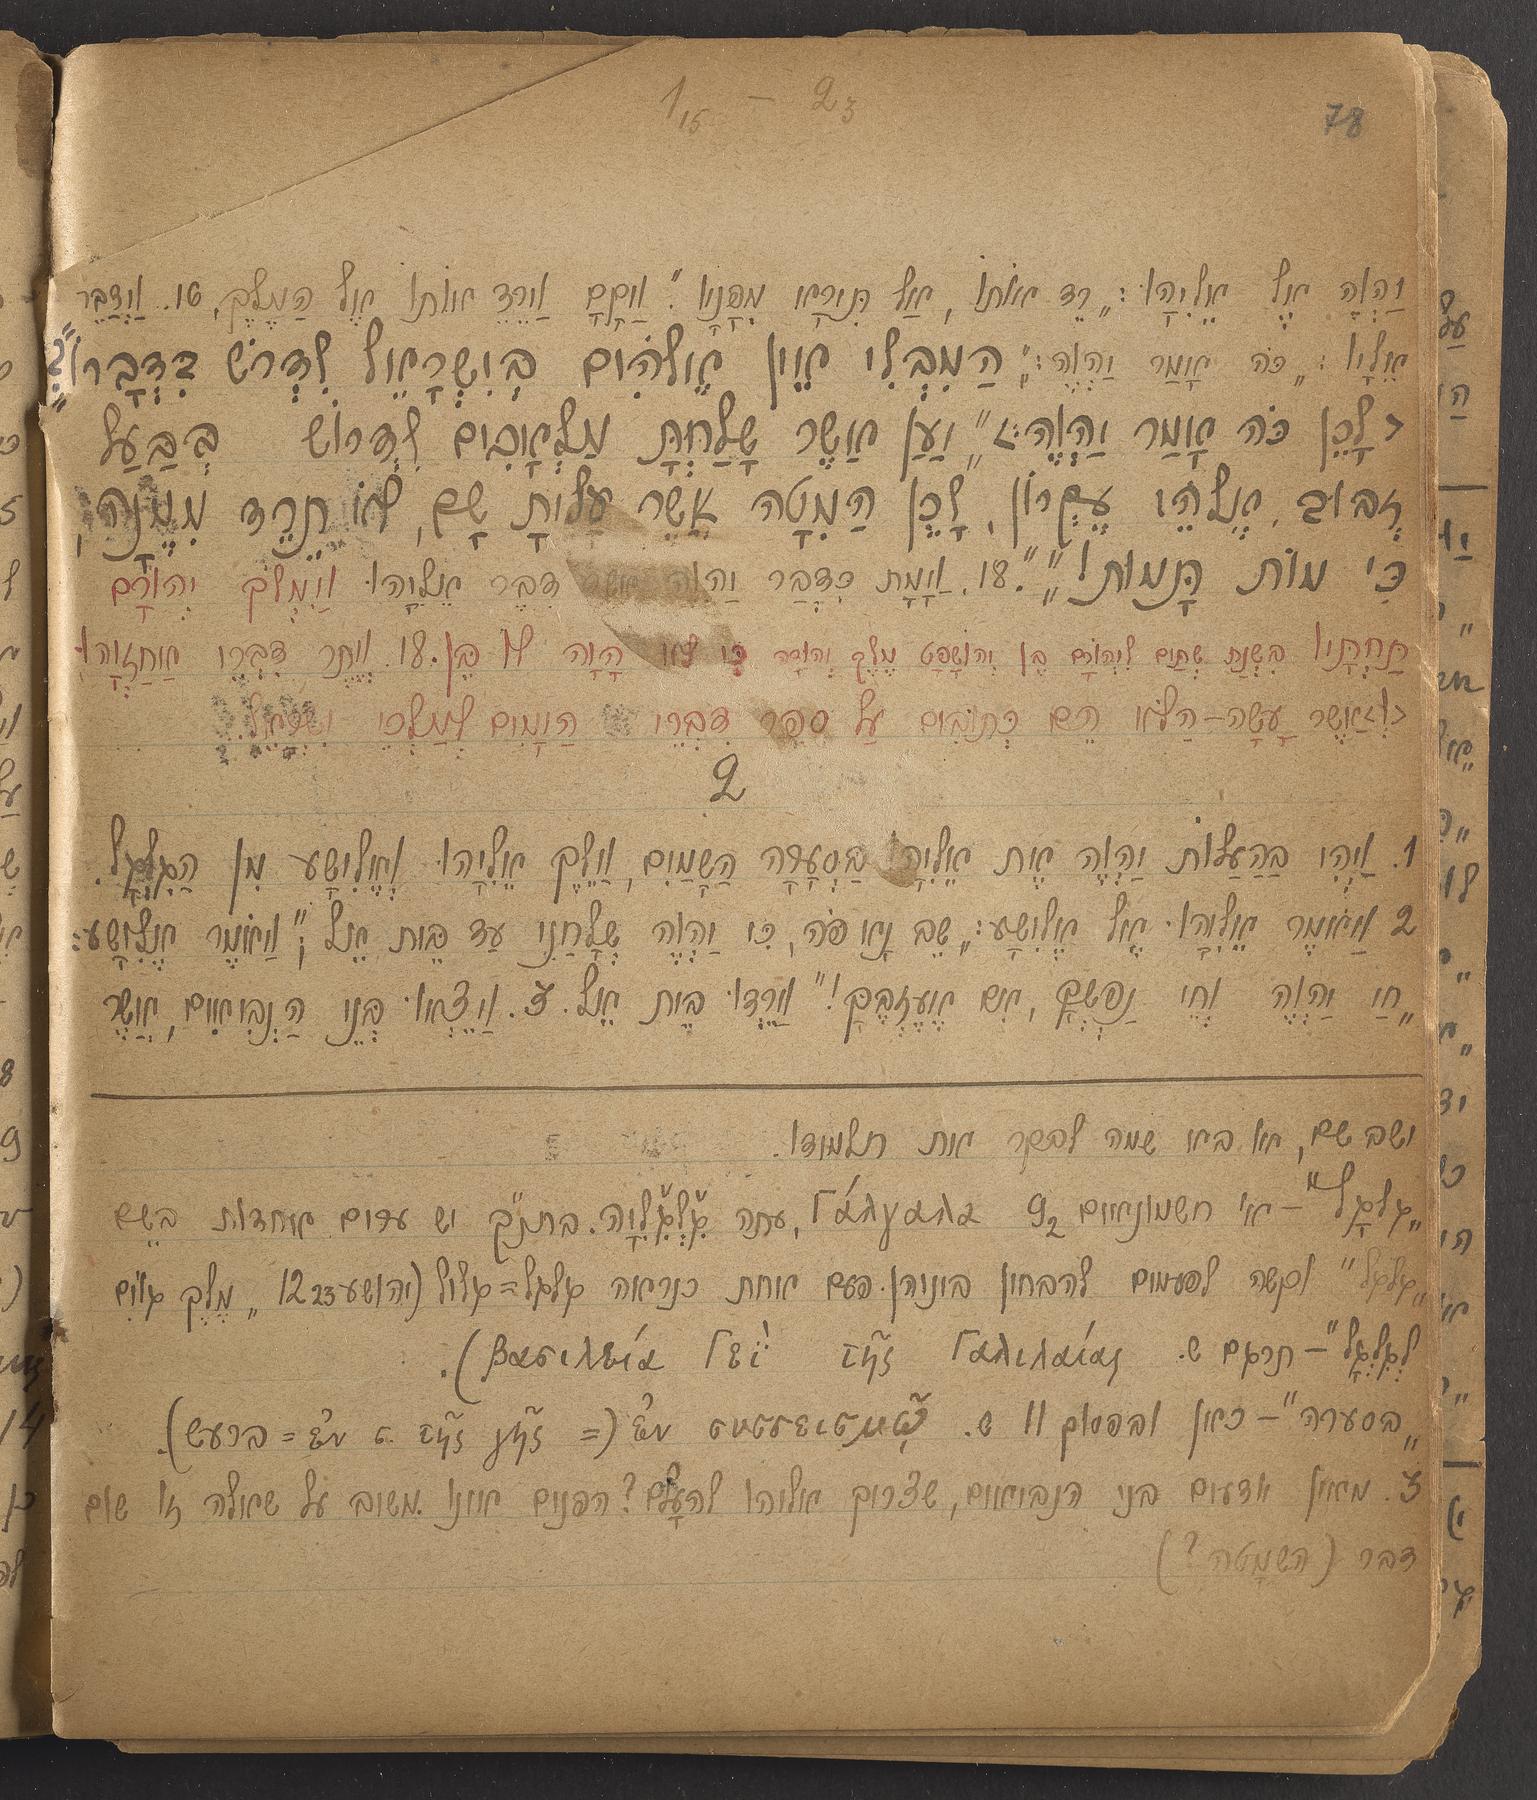 1₁₅ – 2₃
78
יַהְוֶה אֶל אֵלִיָּהוּ: „רֵד אֹתוֹ, אַל תִּירָא מִפָּנָיו.” וַיָּקָם וַיֵּרֶד אֹתוֹ אֶל הַמֶּלֶךְ, 16. וַיְדַבֵּר
אֵלָיו: „כֹּה אָמַר יַהְוֶה: „הַמִבְּלִי אֵין אֱלֹהִים בְּיִשְׂרָאֵל לִדְרֹשׁ בִּדְבָרוֹ?”
<לָכֵן כֹּה אָמַר יַהְוֶה:> „יַעַן אֲשֶׁר שָׁלַחְתָּ מַלְאָכִים לִדְרוֹשׁ בְּבַעַל
זְבוּב, אֱלֹהֵי עֶקְרוֹן, לָכֵן הַמִּטָּה אֲשֶׁר עָלִיתָ שָׁם, לֹא תֵרֵד מִמֶּנָּה,
כִּי מוֹת תָּמוּת!”” 17. וַיָּמָת כִּדְבַר יַהְוֶה אשר דִּבֶּר אֵלִיָּהוּ. וַיִּמְלֹךְ יְהוֹרָם
תַּחְתָּיו בִּשְׁנַת שְׁתַּיִם לִיהוֹרָם בֶּן יְהוֹשָׁפָט מֶלֶךְ יְהוּדָה כִּי לֹא הָיָה לוֹ בֵּן. 18. וְיֶתֶר דִּבְרֵי אֲחַזְיָהוּ
<ו>אֲשֶׁר עָשָׂה–הַלֹא הֵם כְּתוּבִים עַל סֵפֶר דִּבְרֵי הַיָּמִים לְמַלְכֵי יִשְׂרָאֵל.
2
1. וַיְהִי בְּהַעֲלוֹת יַהְוֶה אֶת אֵלִיָּהוּ בַּסְעָרָה הַשָּׁמַיִם, וַיֵּלֶךְ אֵלִיָּהוּ וֶאֱלִישָׁע מִן הַגִּלְגָּל.
2 וַיֹּאמֶר אֵלִיָּהוּ אֶל אֱלִישָׁע: „שֵׁב נָא פֹה, כִּי יַהְוֶה שְׁלָחַנִי עַד בֵּית אֵל;” וַיֹּאמֶר אֱלִישָׁע:
„חַי יַהְוֶה וְחֵי נַפְשְׁךָ, אִם אֶעֶזְבֶךָּ!” וַיֵּרְדוּ בֵּית אֵל. 3. וַיֵּצְאוּ בְּנֵי הַנְּבִיאִים, אֲשֶׁר
ישב שם, או בא שמה לבקר את תלמודו.
„גלגל” – אי חשמונאים 9₂ Γάλγαλα, עתה גִ'לְגִ'לִיָה. בתנ״ך יש ערים אחדות בשֵם
„גלגל” וקשה לפעמים להבחין ביניהן. פעם אחת כנראה גלגל = גליל (יהושע 12₂₃ „מֶלֶךְ גּוֹיִם
לְגִלְגָּל” – תרגם ש. βασιλεία Γεὶ τῆς Γαλιλαίας).
„בסערה” – כאן ובפסוק 11 ש. ἐν συσσεισμῷ (= ἐν σ. τῆς γῆς = ברעש).
3. מאין יודעים בני הנביאים, שצריך אליהו להעָלם? הפנים איננו משיב על שאלה זו שום
דבר (השמָטה?)